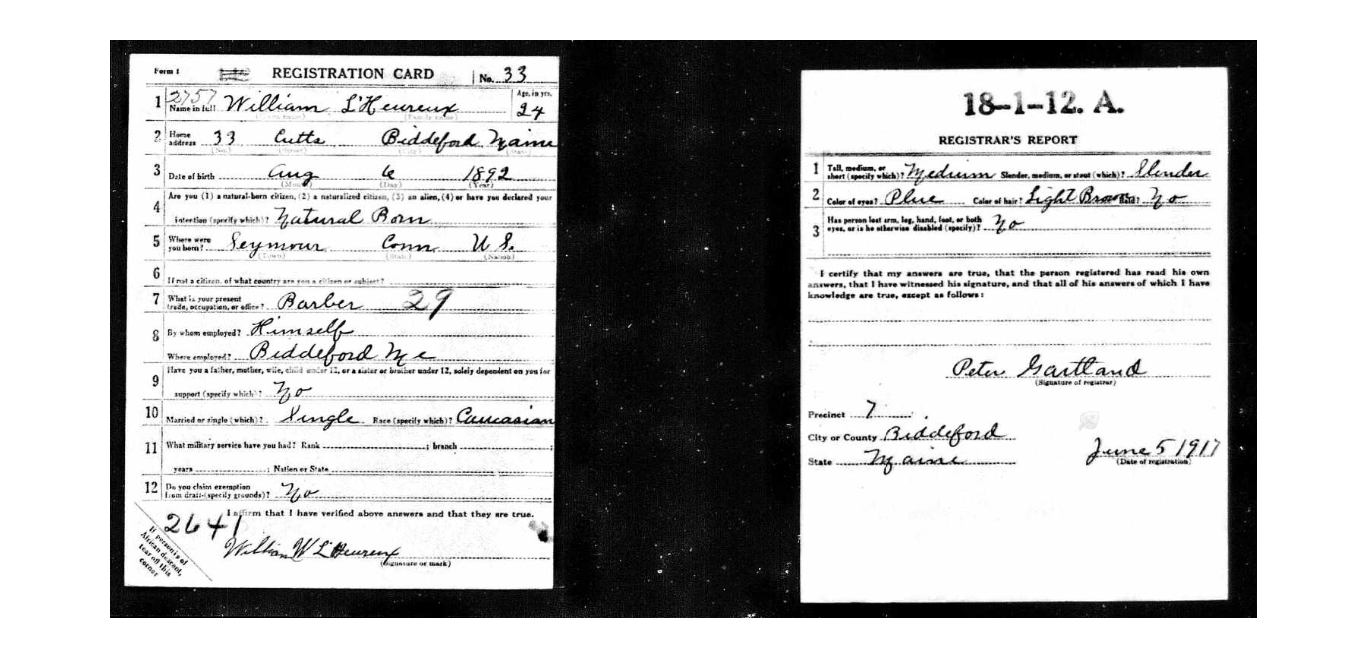 Form 1 REGISTRATION CARD No. 33
1 2757 Name in full William L'Heureux Age, in yrs. 24
(Given name) (Family name)
2 Home address 33 Cutts Biddeford Maine
(No.) (Street) (City) (State)
3 Date of birth Aug 6 1892
(Month) (Day) (Year)
4 Are you (1) a natural-born citizen, (2) a naturalized citizen, (3) an alien, (4) or have you declared your
intention (specify which)? Natural Born
5 Where were you born? Seymour Conn U S.
(Town) (State) (Nation)
6 If not a citizen, of what country are you a citizen or subject?
7 What is your present trade, occupation, or office? Barber 29
8 By whom employed? Himself
Where employed? Biddeford Me
9 Have you a father, mother, wife, child under 12, or a sister or brother under 12, solely dependent on you for
support (specify which)? No
10 Married or single (which)? Single Race (specify which)? Caucasian
11 What military service have you had? Rank ; branch ;
years ; Nation or State
12 Do you claim exemption from draft (specify grounds)? No
I affirm that I have verified above answers and that they are true.
2641
William W L'Heureux
(Signature or mark)
If person is of
African descent,
tear off this
corner
18-1-12. A.
REGISTRAR'S REPORT
1 Tall, medium, or short (specify which)? Medium Slender, medium, or stout (which)? Slender
2 Color of eyes? Blue Color of hair? Light Brown Bald? No
3 Has person lost arm, leg, hand, foot, or both
eyes, or is he otherwise disabled (specify)? No
I certify that my answers are true, that the person registered has read his own
answers, that I have witnessed his signature, and that all of his answers of which I have
knowledge are true, except as follows:
Peter Gartland
(Signature of registrar)
Precinct 7
City or County Biddeford
State Maine
June 5 1917
(Date of registration)